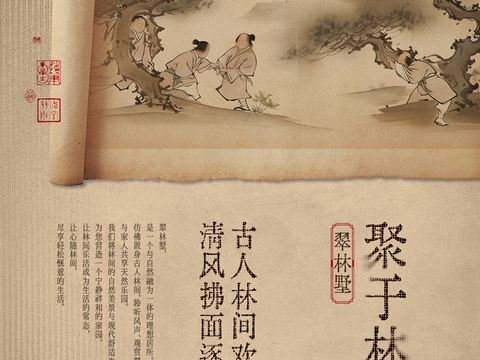 聚于林
翠林墅
古人林间欢
清风拂面逐
翠林墅，
是一个与自然融为一体的理想居所。
仿佛置身古人林间，聆听风声、观赏翠
与家人共享天然乐园。
我们将林间的自然美景与现代舒适生
为您营造一个宁静祥和的家园。
让林间乐活成为生活的常态，
让心随林间，
尽享轻松惬意的生活。